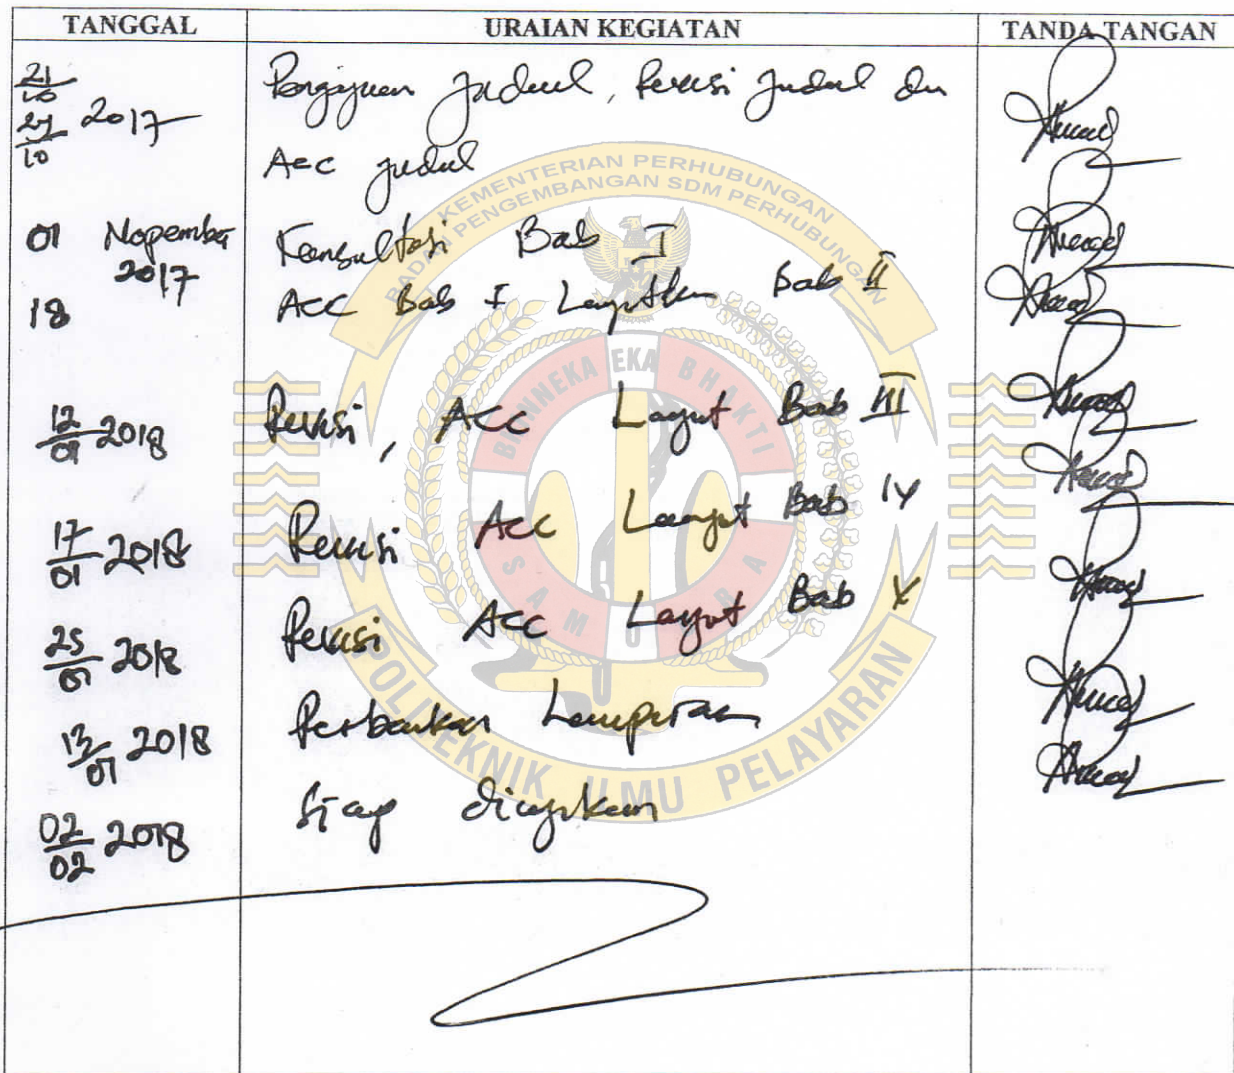 TANGGAL URAIAN KEGIATAN TANDA TANGAN
21/10 27/10 2017 Pengajuan Judul, Revisi Judul dan
Acc judul
01 Nopember 2017 Konsultasi Bab I
18 ACC Bab I Lanjutkan Bab II
12/01 2018 Revisi, ACC Lanjut Bab III
17/01 2018 Revisi ACC Lanjut Bab IV
25/01 2018 Revisi ACC Lanjut Bab V
2018 Perbaikan Lampiran
02/02 2018 Siap diujikan
KEMENTERIAN PERHUBUNGAN
BADAN PENGEMBANGAN SDM PERHUBUNGAN
BHINNEKA EKA BHAKTI
SAMUDRA
POLITEKNIK ILMU PELAYARAN